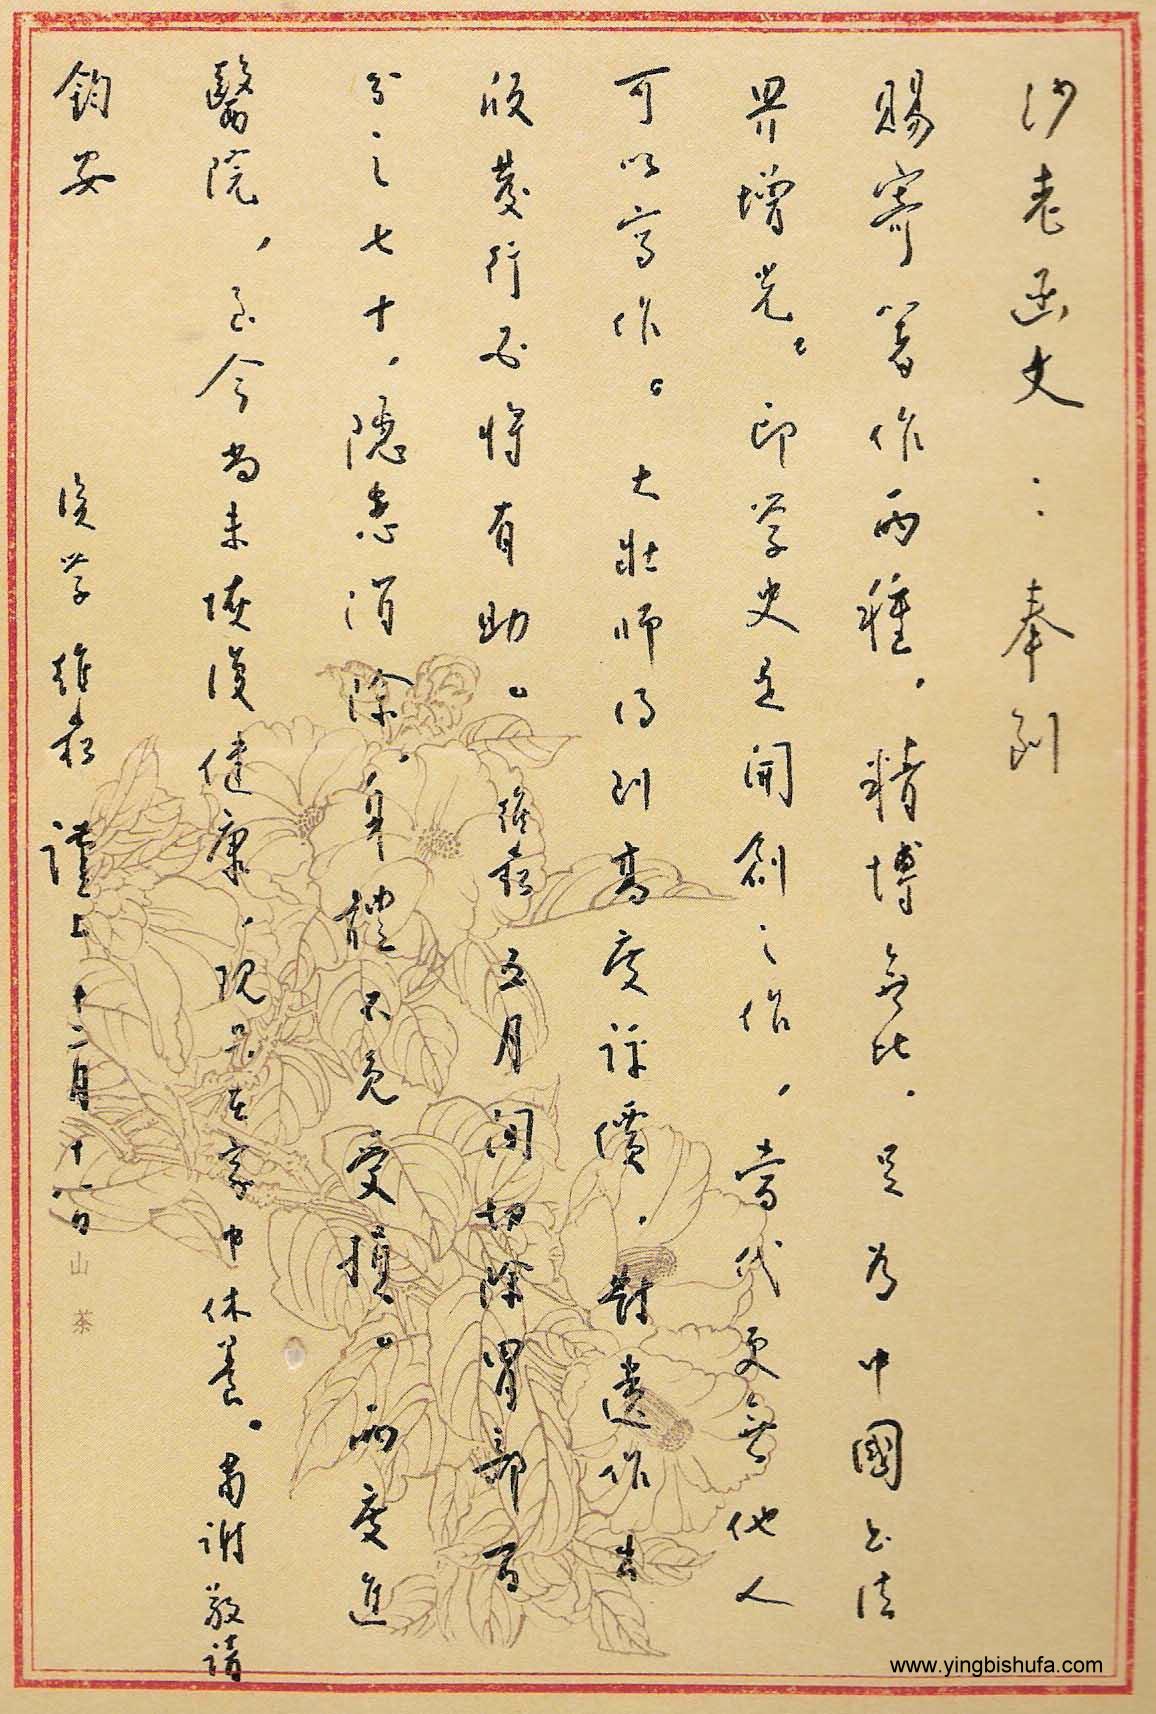 沙老函丈：奉到
賜寄著作兩種，精博無比，足为中國书法
界增光。印学史是開創之作，當代更無他人
可以寫作。大壯師得到高度評價，對遺作出
版發行必將有助。維崧五月間切除胃部百
分之七十，隱患消除，身體不免受損。兩度進
醫院，至今尚未恢復健康，現是在家中休養。肅謝敬請
鈞安
後学維崧謹上 十二月十八日
山茶
www.yingbishufa.com